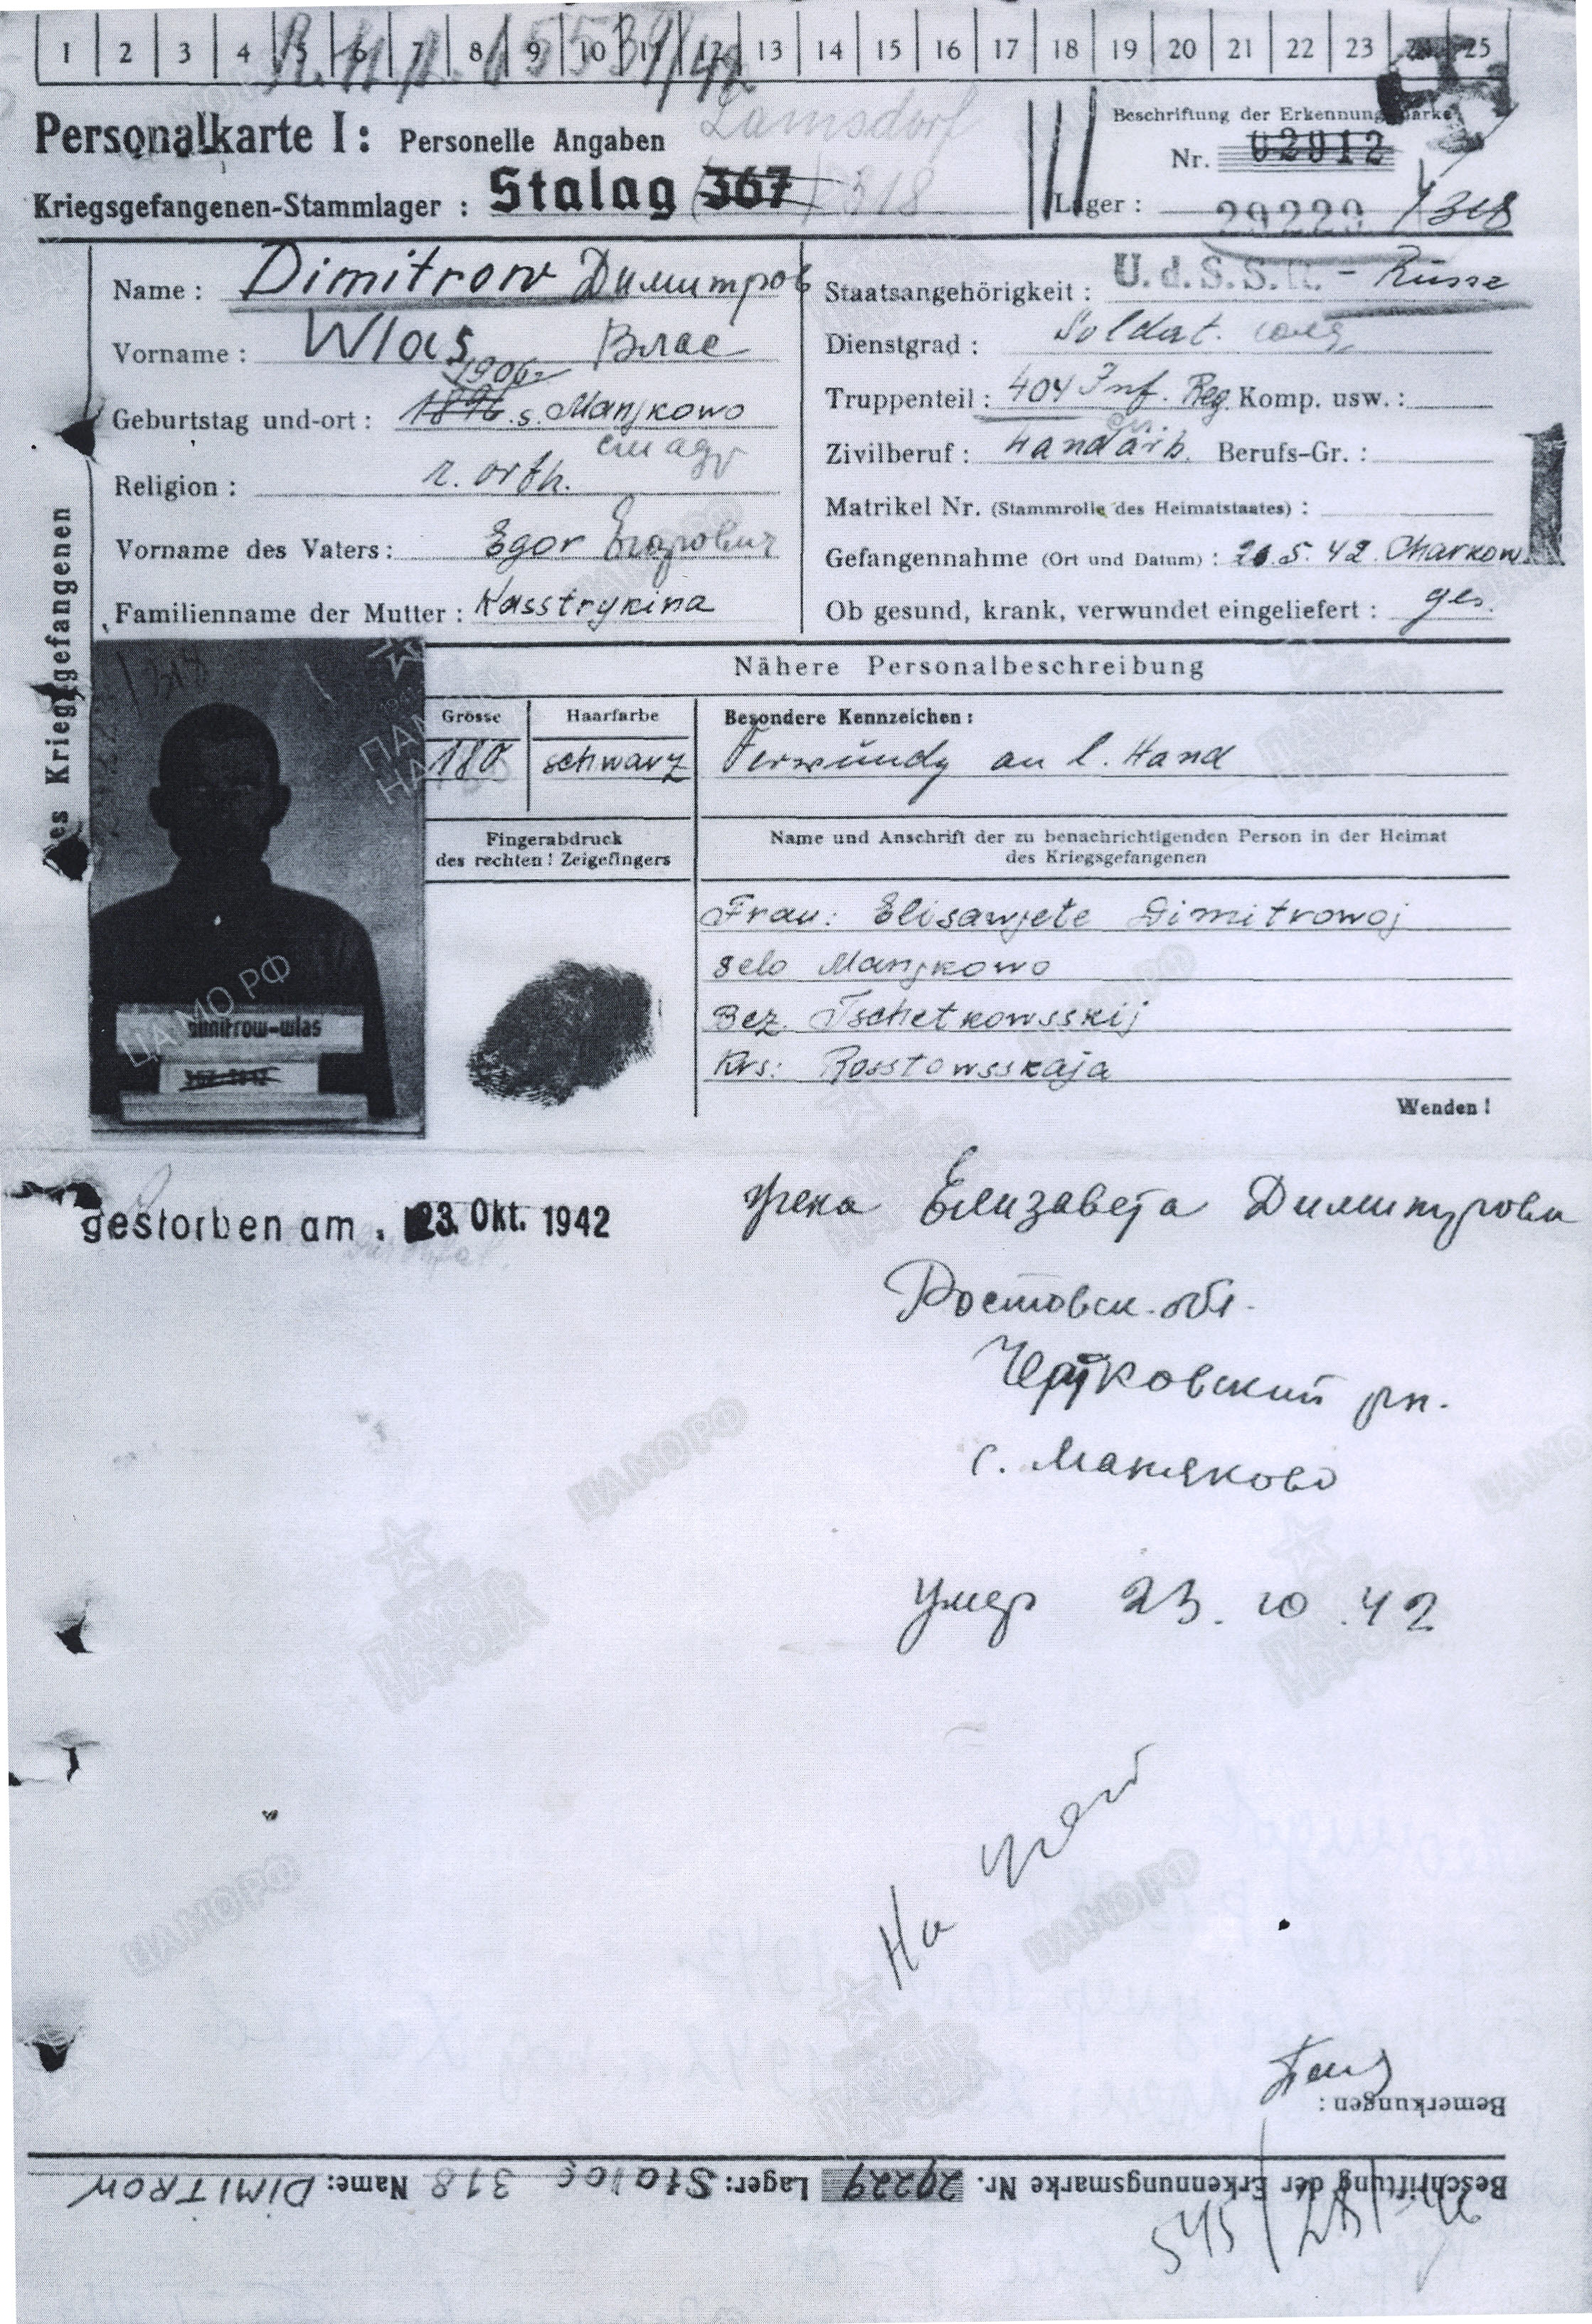 1 2 3 4 5 6 7 8 9 10 11 12 13 14 15 16 17 18 19 20 21 22 23 24 25
Personalkarte I: Personelle Angaben
Lamsdorf
Beschriftung der Erkennungsmarke
Nr. 02912
Kriegsgefangenen-Stammlager: Stalag 367 318
Lager: 29229 / 318
Name: Dimitrow Димитров
Staatsangehörigkeit: U.d.S.S.R. - Russe
Vorname: Wlas Влас
Dienstgrad: Soldat.
1906
Geburtstag und-ort: 1896 s. Manjkowo
Truppenteil: 404 Inf. Reg. Komp. usw.:
Religion: r. orth.
Zivilberuf: Handarb. Berufs-Gr.:
Matrikel Nr. (Stammrolle des Heimatstaates):
Vorname des Vaters: Egor Егорович
Gefangennahme (Ort und Datum): 5. 42. Charkow
Familienname der Mutter: Kasstrykina
Ob gesund, krank, verwundet eingeliefert: ges.
des Kriegsgefangenen
Nähere Personalbeschreibung
Grösse Haarfarbe Besondere Kennzeichen:
180 schwarz an l. Hand
Fingerabdruck
des rechten! Zeigefingers
Name und Anschrift der zu benachrichtigenden Person in der Heimat
des Kriegsgefangenen
Frau: Elisawjete Dimitrowoj
selo Manjkowo
Bez. Tschetkowsskij
Krs: Rosstowsskaja
Wenden!
dimitrow-wlas
ЦАМО РФ
gestorben am . 23. Okt. 1942
Елизавета Димитрова
Ростовск. обл.
Чертковский рн.
с. Маньково
Умер 23. 10. 42
На учет
Bemerkungen:
Beschriftung der Erkennungsmarke Nr. 29229 Lager: Stalag 318 Name: DIMITROW